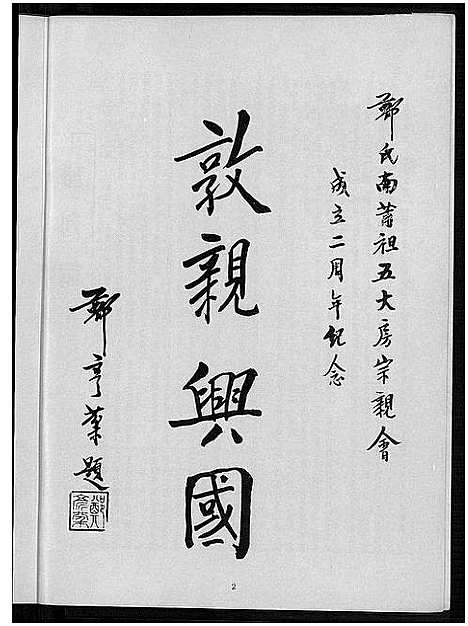 鄭氏南莆祖五大房宗親會
成立二周年纪念
敦親興國
鄭亨葉題
2